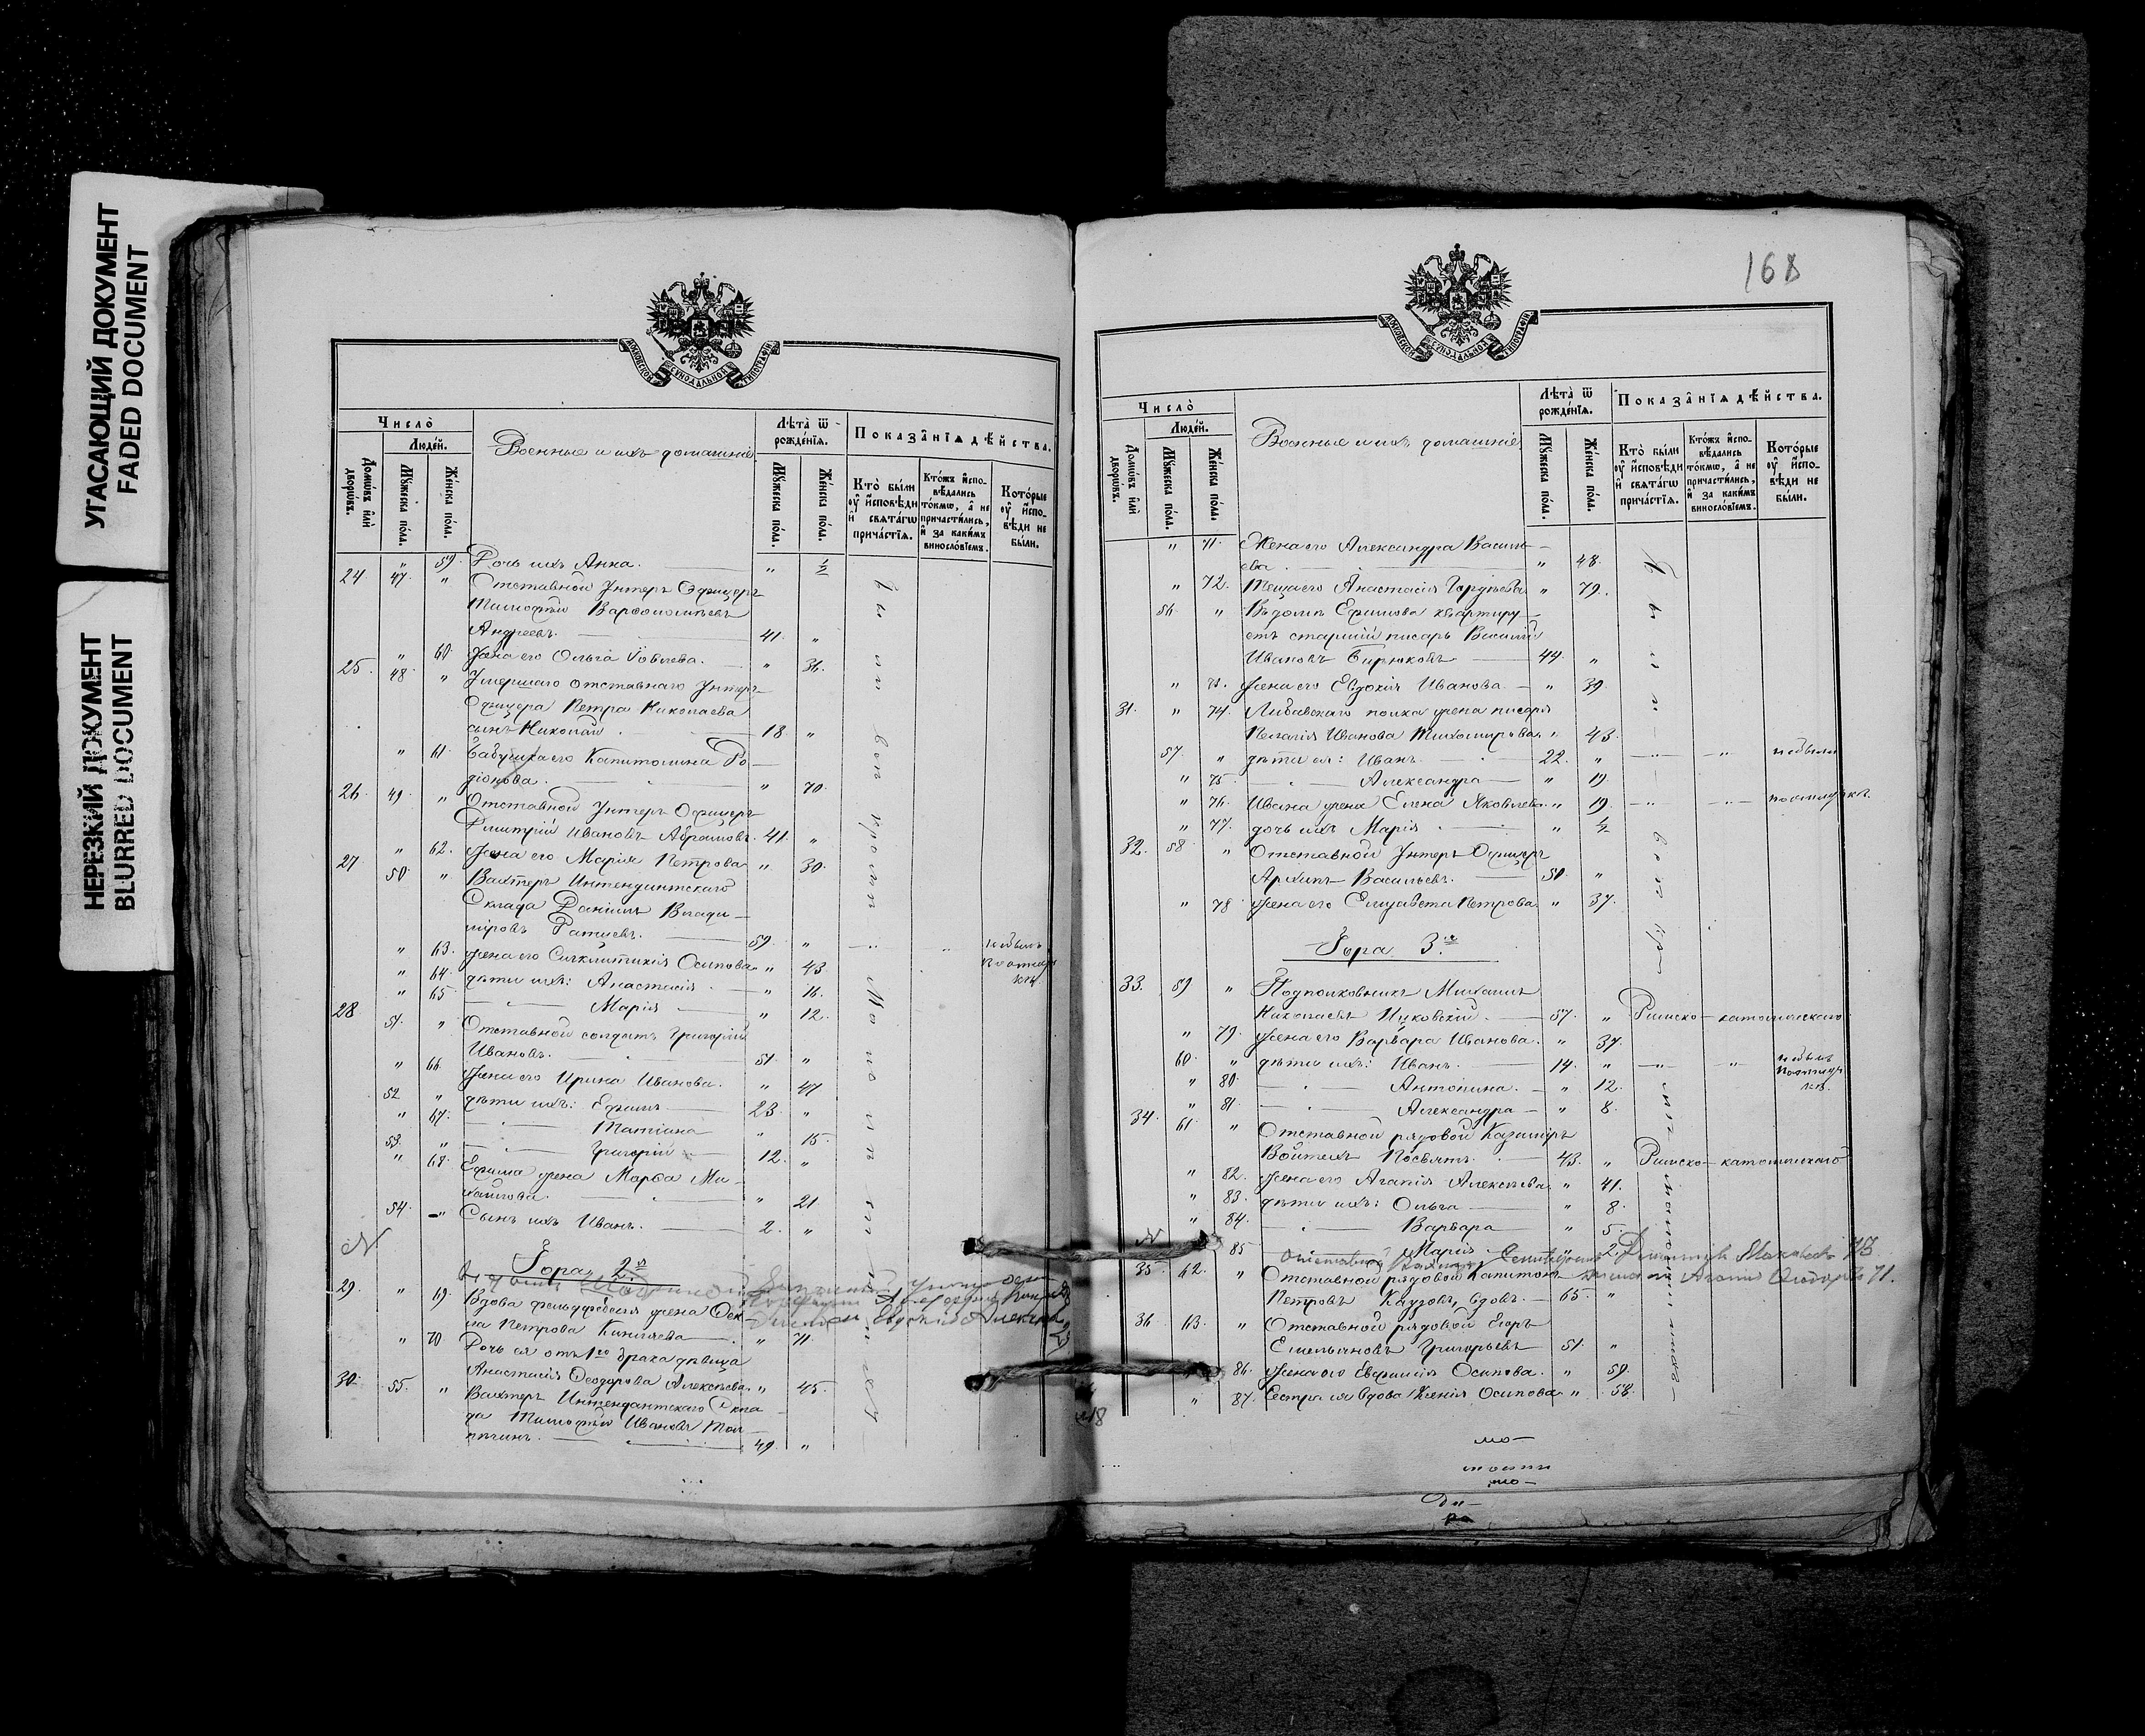 УГАСАЮЩИЙ ДОКУМЕНТ
FADED DOCUMENT
НЕРЕЗКИЙ ДОКУМЕНТ
BLURRED DOCUMENT
МОСКОВСКОЙ СѴНОДАЛЬНОЙ ТИПОГРАФІИ
Число̀
Людей.
Домѡвъ или дворѡвъ.
Мꙋжеска пола.
Женска пола.
Военные и ихъ домашніе
Лѣта ѿ рожденїѧ.
Мꙋжеска пола.
Женска пола.
Показанїѧ дѣйства.
Кто были оу исповѣди и свѧтагѡ причастїѧ.
Ктожъ исповѣдались токмѡ, а не причастились, и за какимъ винословїемъ.
Которые оу исповѣди не были.
" 59. Дочь ихъ Анна. " ½
24 47. " Отставной Унтеръ Офицеръ
Тимофѣй Варѳоломѣевъ
Андреевъ. 41. "
" 60. Жена его Ольга Іовлева. " 36.
25. 48. " Умершаго отставнаго Унтеръ-
Офицера Петра Николаева
сынъ Николай 18. "
" 61. Бабушка его Капитолина Ро-
діонова. " 70.
26. 49. " Отставной Унтеръ Офицеръ
Дмитрій Ивановъ Абрамовъ. 41. "
" 62. Жена его Марія Петрова " 30.
27 50. " Вахтеръ Интендантскаго
Склада Даніилъ Влади-
міровъ 59. " не былъ
" 63. Жена его Синклитикія Осипова " 43
" 64. дѣти ихъ: Анастасія " 16.
" 65 Марія " 12.
28 51. " Отставной солдатъ Григорій
Ивановъ. 51. "
" 66. Жена его Ирина Иванова. " 47
52 " дѣти ихъ: Ефимъ 23. "
" 67. Татіана " 15.
53. " Григорій 12. "
" 68. Ефима жена Марѳа Ми-
хаилова. " 21
54. " Сынъ ихъ Иванъ. 2. "
Гора 2я
29. " 69. Вдова фельдфебеля жена
Петрова " 71.
" 70 Дочь ея отъ 1го брака дѣвица
Анастасія Ѳеодорова Алексѣева. " 45.
30. 55. " Вахтеръ Интендантскаго Скла-
да Тимофѣй Ивановъ
49. "
168
МОСКОВСКОЙ СѴНОДАЛЬНОЙ ТИПОГРАФІИ
Число̀
Людей.
Домѡвъ или дворѡвъ.
Мꙋжеска пола.
Женска пола.
Военные и ихъ домашніе
Лѣта ѿ рожденїѧ.
Мꙋжеска пола.
Женска пола.
Показанїѧ дѣйства.
Кто были оу исповѣди и свѧтагѡ причастїѧ.
Ктожъ исповѣдались токмѡ, а не причастились, и за какимъ винословїемъ.
Которые оу исповѣди не были.
" 71. Жена его Александра Василь-
ева " 48.
" 72. Теща его Анастасія Гордѣева " 79.
56. " Въ домѣ Ефимова квартиру-
етъ старшій писарь Василій
Ивановъ Бирюковъ 44. "
" 73. Жена его Евдокія Иванова " 39
31. " 74. Либавскаго полка жена писаря
Пелагія Иванова Тихомирова. " 43.
57. " дѣти ея: Иванъ 22. " не были
" 75. Александра " 19.
" 76. Ивана жена Елена Яковлева " 19.
" 77. дочь ихъ Марія " ½
32. 58. " Отставной Унтеръ Офицеръ
Архипъ Васильевъ. 50. "
" 78 Жена его Елизавета Петрова " 37.
Гора 3я
33. 59 " Подполковникъ Михаилъ
Николаевъ 57. " Римско-католическаго
" 79. Жена его Варвара Иванова. " 37.
60. " дѣти ихъ: Иванъ. 14. " не былъ
" 80. Антонина. " 12.
" 81. Александра " 8.
34. 61. " Отставной рядовой Казиміръ
43. " Римско-католическаго
" 82. Жена его Агапія Алексѣева " 41.
" 83. дѣти ихъ: Ольга " 8.
" 84. Варвара " 5.
" 85 Марія " 2.
35. 62. " Отставной рядовой Капитонъ
Петровъ вдовъ. 65. "
36 63. " Отставной рядовой Егоръ
Емельяновъ Григорьевъ 51. "
" 86. Жена его Евфимія Осипова. " 59.
" 87. Сестра ея вдова Ксенія Осипова " 58.